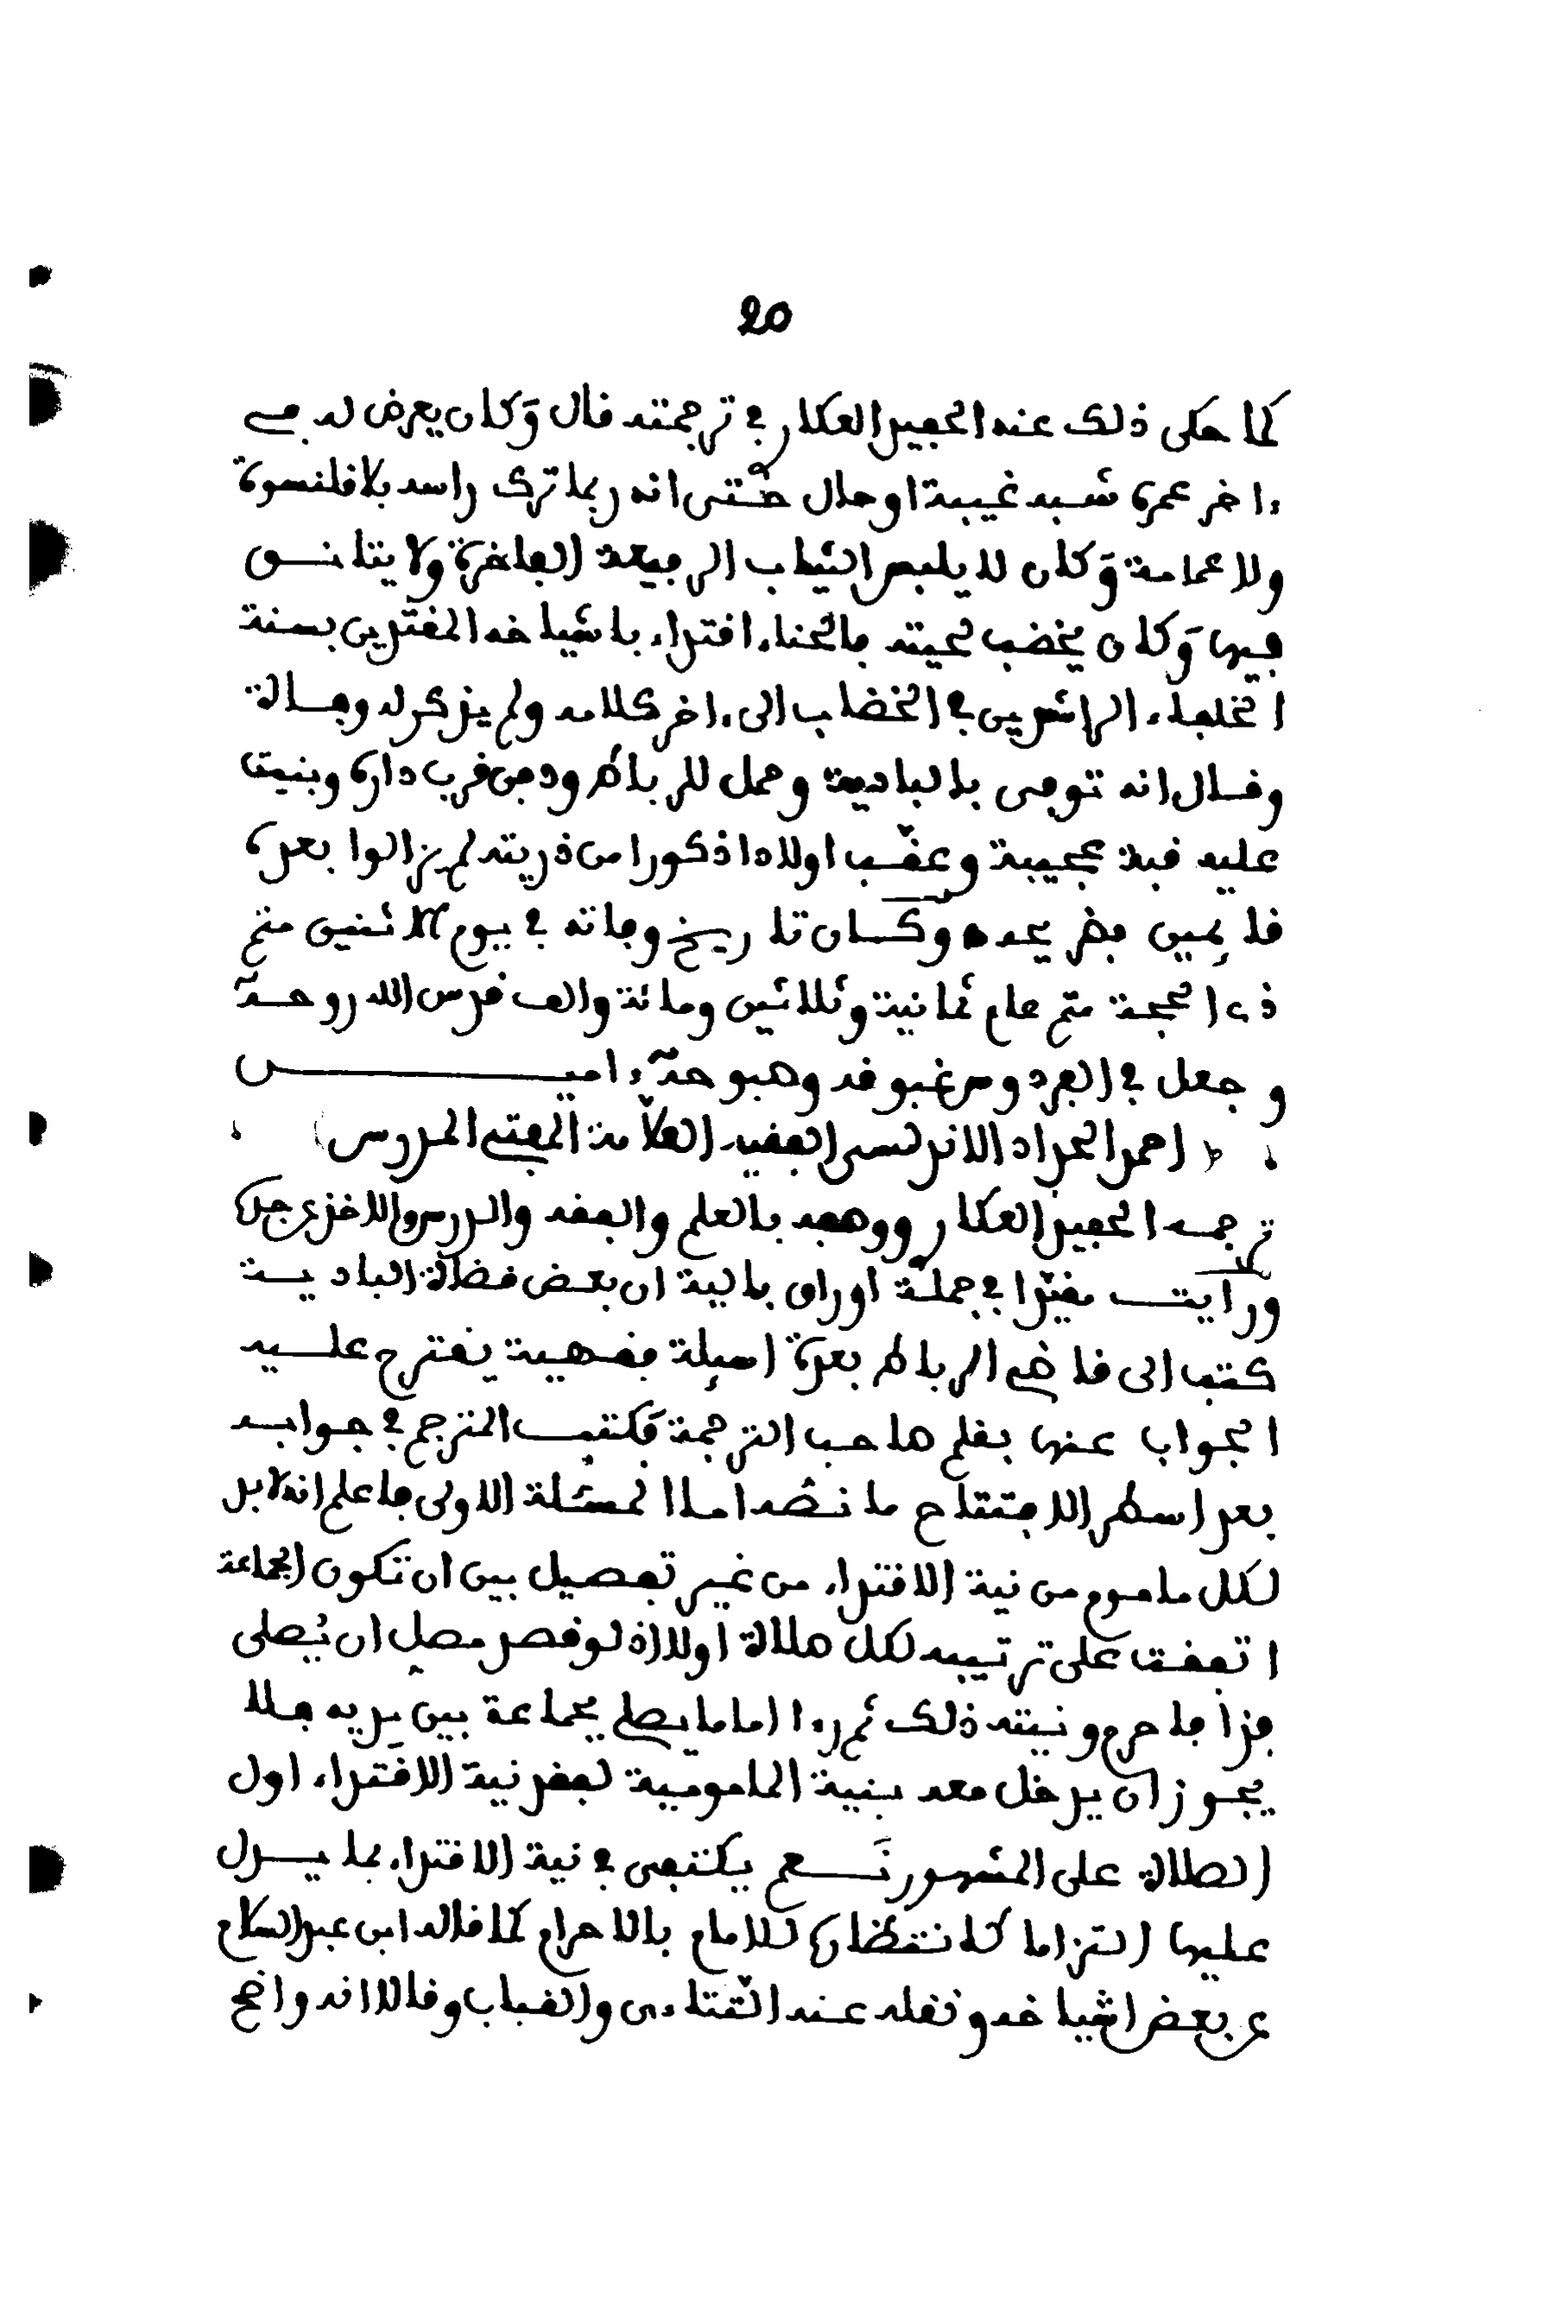 20
كما حكى ذلك عنه الحفيد العكاري في ترجمته قال وَكان يعرض له في
ءاخر عمره شبه غيبة او حال حتى انه ربما ترك راسه بلا قلنسوة
ولا عمامة وَكان لا يلبس الثياب الرفيعة الفاخرة ولا يتانق
فيها وَكان يخضب لحيته بالحناء اقتداء باشياخه المقتدين بسنة
الخلفاء الراشدين في الخضاب الى ءاخر كلامه ولم يذكر له وفاة
وقال انه توفى بالبادية وحمل للرباط ودفن قرب داره وبنيت
عليه قبة عجيبة وعقّب اولادا ذكورا من ذريته لم يزالوا بعده
قايمين بضريحه وكان تاريخ وفاته في يوم الاثنين متم
ذي الحجة متم عام ثمانية وثلاثين ومائة والف قدس الله روحه
وجعل في الفردوس غبوقه وصبوحه ءاميـن
( احمد الحداد الاندلسي الفقيه العلاّمة المفتي المدرس )
ترجمه الحفيد العكاري ووصفه بالعلم والفقه والدرس والاخذ عن جده
ورايت مقيّدا في جملة اوراق بالية ان بعض قضاة البادية
كتب الى قاضي الرباط بعدة اسيلة فقهية يقترح عليه
الجواب عنها بقلم صاحب الترجمة فكتب المترجم في جوابه
بعد اسطر الافتتاح ما نصّه اما المسئلة الاولى فاعلم انه لابد
لكل ماموم من نية الاقتداء من غير تفصيل بين ان تكون الجماعة
اتفقت على ترتيبه لكل صلاة اولا اذ لو قصد مصل ان يُصلى
فذا فاحرم ونيته ذلك ثم رءا اماما يصلي بجماعة بين يديه فلا
يجوز ان يدخل معه بنية المامومية لفقد نية الاقتداء اول
الصلاة على المشهور نَعم يكتفى في نية الاقتداء بما يدل
عليها التزاما كانتظاره للامام بالاحرام كما قاله ابن عبد السلام
عن بعض اشياخه ونقله عنه التتاءى والقباب وقالا انه واضح